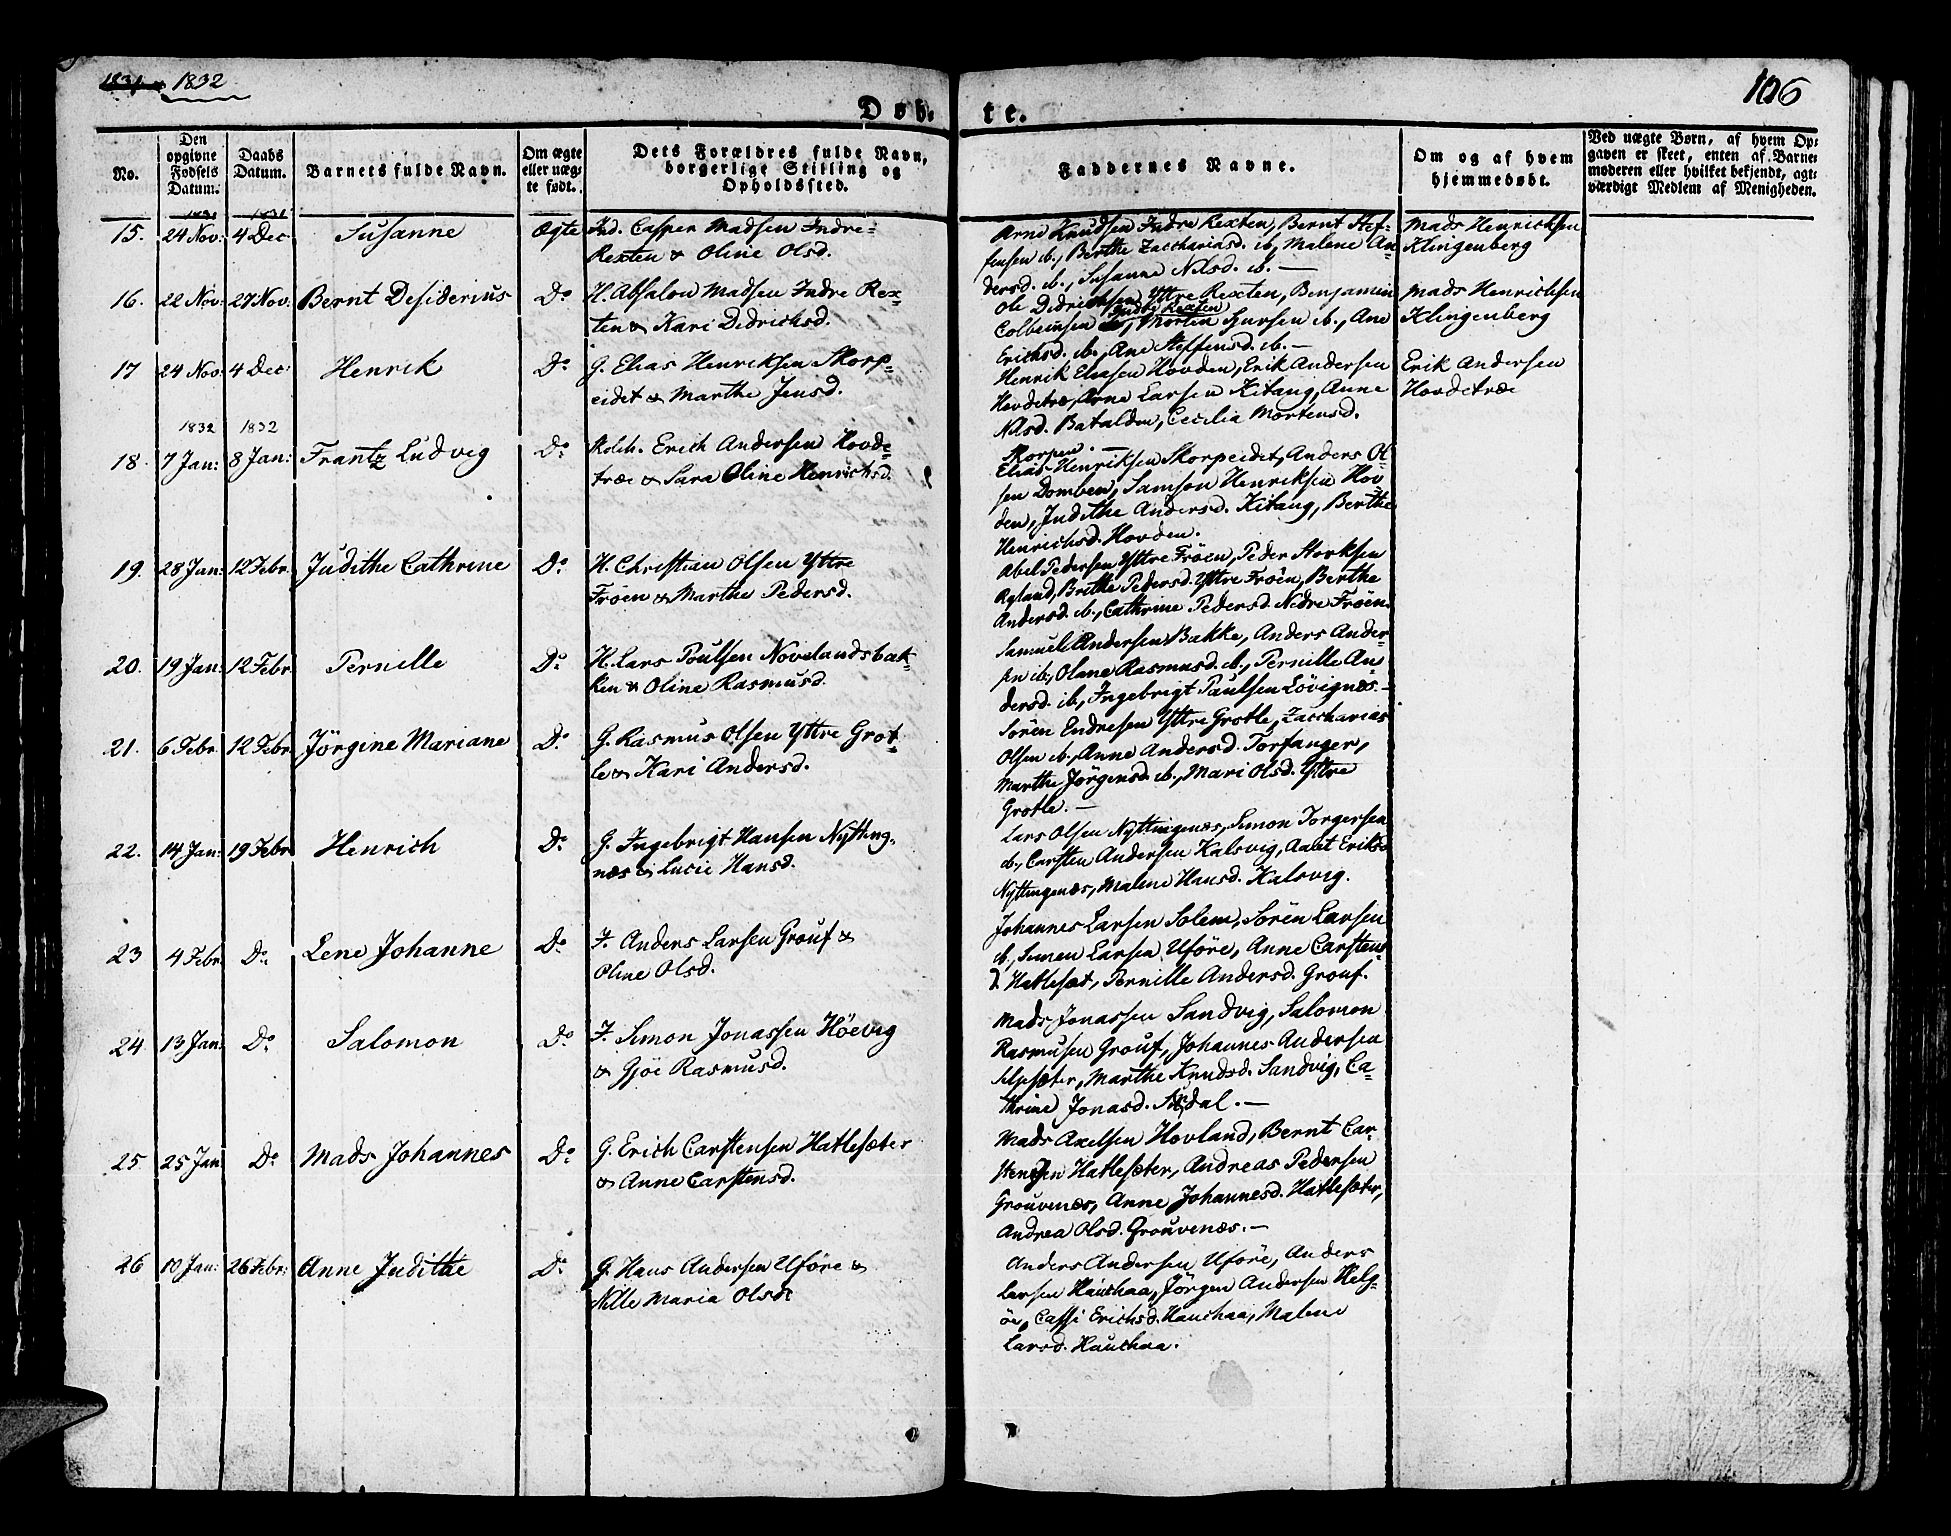 1831 & 1832
106
Døb-
te.
No.
Den opgivne Fødsels Datum.
Daabs Datum.
Barnets fulde Navn.
Om ægte eller uægte født.
Dets Forældres fulde Navn, borgerlige Stilling og Opholdssted.
Faddernes Navne.
Om og af hvem hjemmedøbt.
Ved uægte Børn, af hvem Opgaven er skeet, enten af Barnemoderen eller hvilket bekjendt, agtværdigt Medlem af Menigheden.
1831 1831
15. 24 Nov: 4 Dec Susanne Ægte Ind. Casper Madsen Indre-
Rexten & Oline Olsd.
Arne Knudsen Indre Rexten, Bernt Stef-
fensen ib., Berthe Zacchariasd. ib, Malene An-
dersd. ib., Susanne Nilsd. ib. —
Mads Henrichsen
Klingenberg
16. 22 Nov: 27 Nov: Bernt Desiderius Do H. Absalon Madsen Indre Rex-
ten & Kari Didrichsd.
Ole Didrichsen Yttre Rexten, Benjamin
Indre Rexten
Colbeinsen ib., Morten Hursen ib., Ane
Erichsd. ib., Ane Steffensd. ib. —
Mads Henrichsen
Klingenberg
17 24 Nov: 4 Dec: Henrik Do G. Elias Henriksen Skorp-
eidet & Marthe Jensd.
Henrik Eliasen Hovden, Erik Andersen
Hovdetræ, Arne Larsen Kitang, Anne
Nilsd. Batalden, Cecilia Mortensd.
Skorpen. —
Erik Andersen
Hovdetræe
1832 1832
18. 7 Jan: 8 Jan: Frantz Ludvig Do Kolch. Erich Andersen Hovde-
træe & Sara Oline Henrichsd.
Elias Henriksen Skorpeidet, Anders Ol-
sen Domben, Samson Henriksen Hov-
den, Judithe Andersd. Kitang, Berthe
Henrichsd. Hovden.
19. 28 Jan: 12 Febr. Judithe Cathrine Do H. Christian Olsen Yttre
Frøen & Marthe Pedersd.
Abel Pedersen Yttre Frøen, Peder Storksen
Ryland, Brithe Pedersd. Yttre Frøen, Berthe
Andersd. ib., Cathrine Pedersd. Nedre Frøen.
20. 19 Jan: 12 Febr. Pernille Do H. Lars Poulsen Novelandsbak-
ken & Oline Rasmusd.
Samuel Andersen Bakke, Anders Ander-
sen ib., Oline Rasmusd. ib., Pernille An-
dersd. ib., Ingebrigt Paulsen Løvignæs. —
21. 6 Febr. 12 Febr. Jørgine Mariane Do G. Rasmus Olsen Yttre Grot-
le & Kari Andersd.
Søren Endresen Yttre Grotle, Zaccharias
Olsen ib., Anne Andersd. Torfanger,
Marthe Jørgensd. ib., Mari Olsd. Yttre
Grotle. —
22. 14 Jan: 19 Febr. Henrich Do G. Ingebrigt Hansen Nytting-
næs & Lucie Hansd.
Lars Olsen Nyttingnæs, Simon Torgersen
ib., Carsten Andersen Kalsvig, Aalet Eriksd.
Nyttingnæs, Malene Hansd. Kalsvig.
23 4 Febr. Do Lene Johanne Do F. Anders Larsen Grouf &
Oline Olsd.
Johannes Larsen Solem, Søren Larsen
ib., Simen Larsen Uføre, Anne Carstens-
d. Hatlesæt, Pernille Andersd. Grouf.
24. 13 Jan: Do Salomon Do F. Simon Jonassen Høevig
& Gjøe Rasmusd.
Mads Jonassen Sandvig, Salomon
Rasmusen Grouf, Johannes Andersen
sæter, Marthe Knudsd. Sandvig, Ca-
thrine Jonasd. —
25. 25 Jan Do Mads Johannes Do G. Erich Carstensen Hatlesæter
& Anne Carstensd.
Mads Axelsen Hovland, Bernt Car-
stensen Hatlesæter, Andreas Pedersen
Grouvenæs, Anne Johannesd. Hatlesæter,
Andrea Olsd. Grouvenæs. —
26 10 Jan: 26 Febr: Anne Judithe Do G. Hans Andersen Uføre &
Nille Maria Olsd
Anders Andersen Uføre, Anders
Larsen Haukaa, Jørgen Andersen Helg-
øe, Cassi Erichsd. Haukaa, Malene
Larsd. Haukaa.